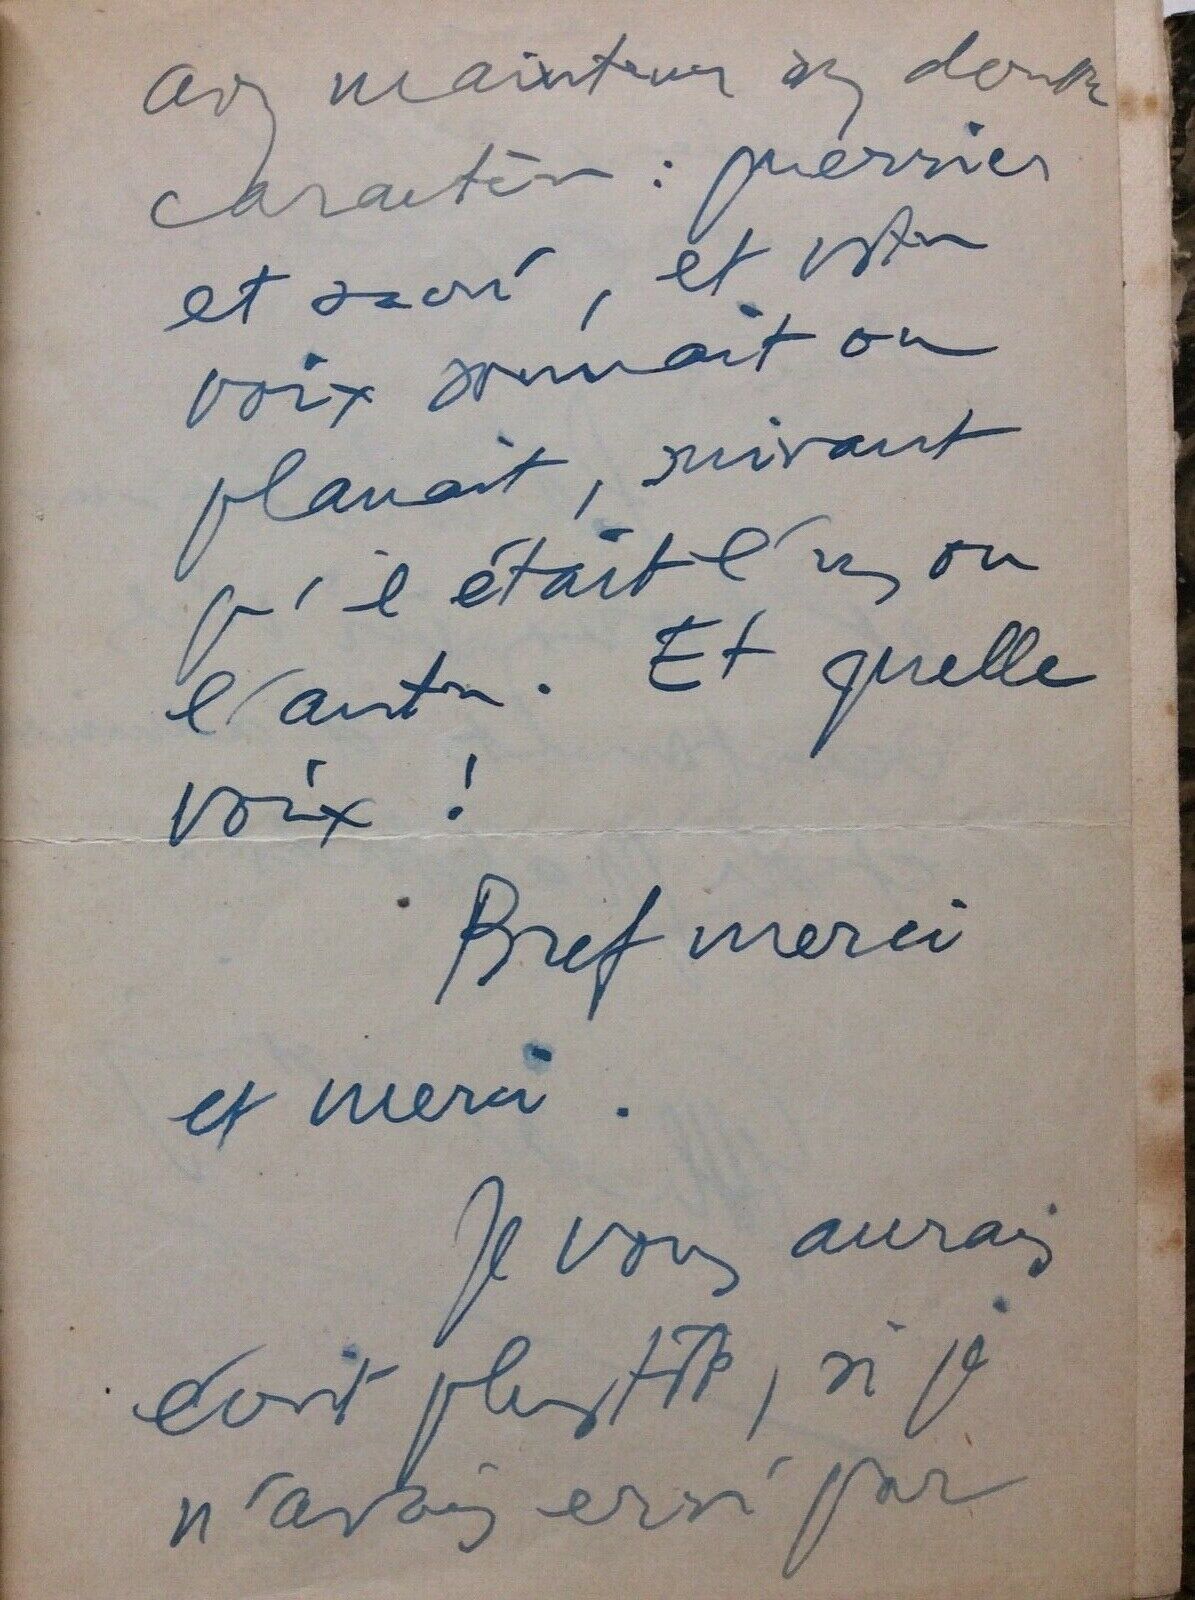 avez maintenu son double
caractère : guerrier
et sacré, et votre
voix sonnait ou
planait, suivant
qu'il était l'un ou
l'autre. Et quelle
voix !
Bref merci
et merci.
Je vous aurais
écrit plus tôt, si je
n'avais erré par